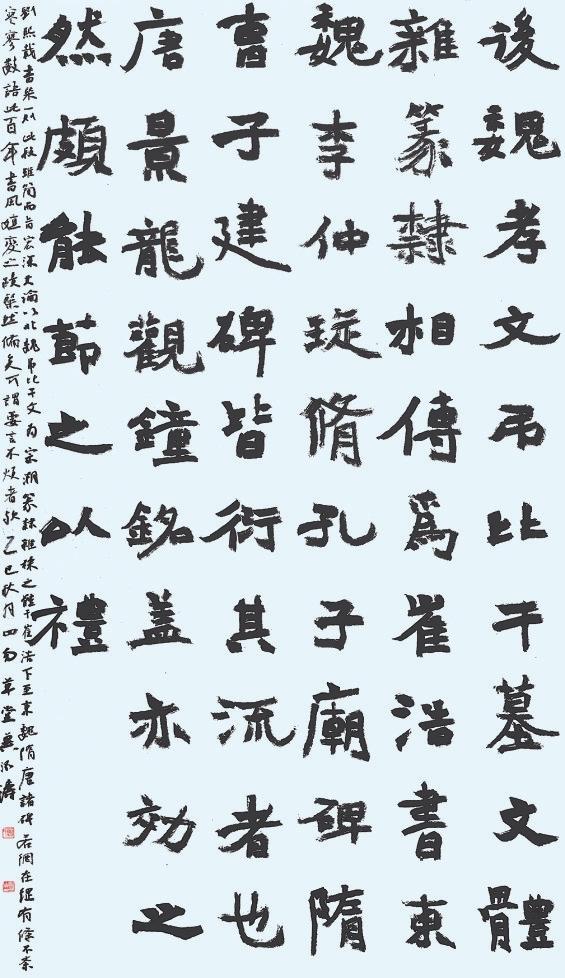 後魏孝文吊比干墓文體
雜篆隸相傳爲崔浩書東
魏李仲琁脩孔子廟碑隋
曹子建碑皆衍其流者也
唐景龍觀鐘銘盖亦効之
然頗能節之以禮
劉熙載書一則此段雖簡而旨宏深大論以北魏吊比干文為宗溯篆隸雜糅之體于崔浩下至東魏隋唐諸碑若網在綱有條不紊
寥寥數語此百年書風嬗變之跡然備矣可謂要言不煩者歟乙巳秋月四草堂濤